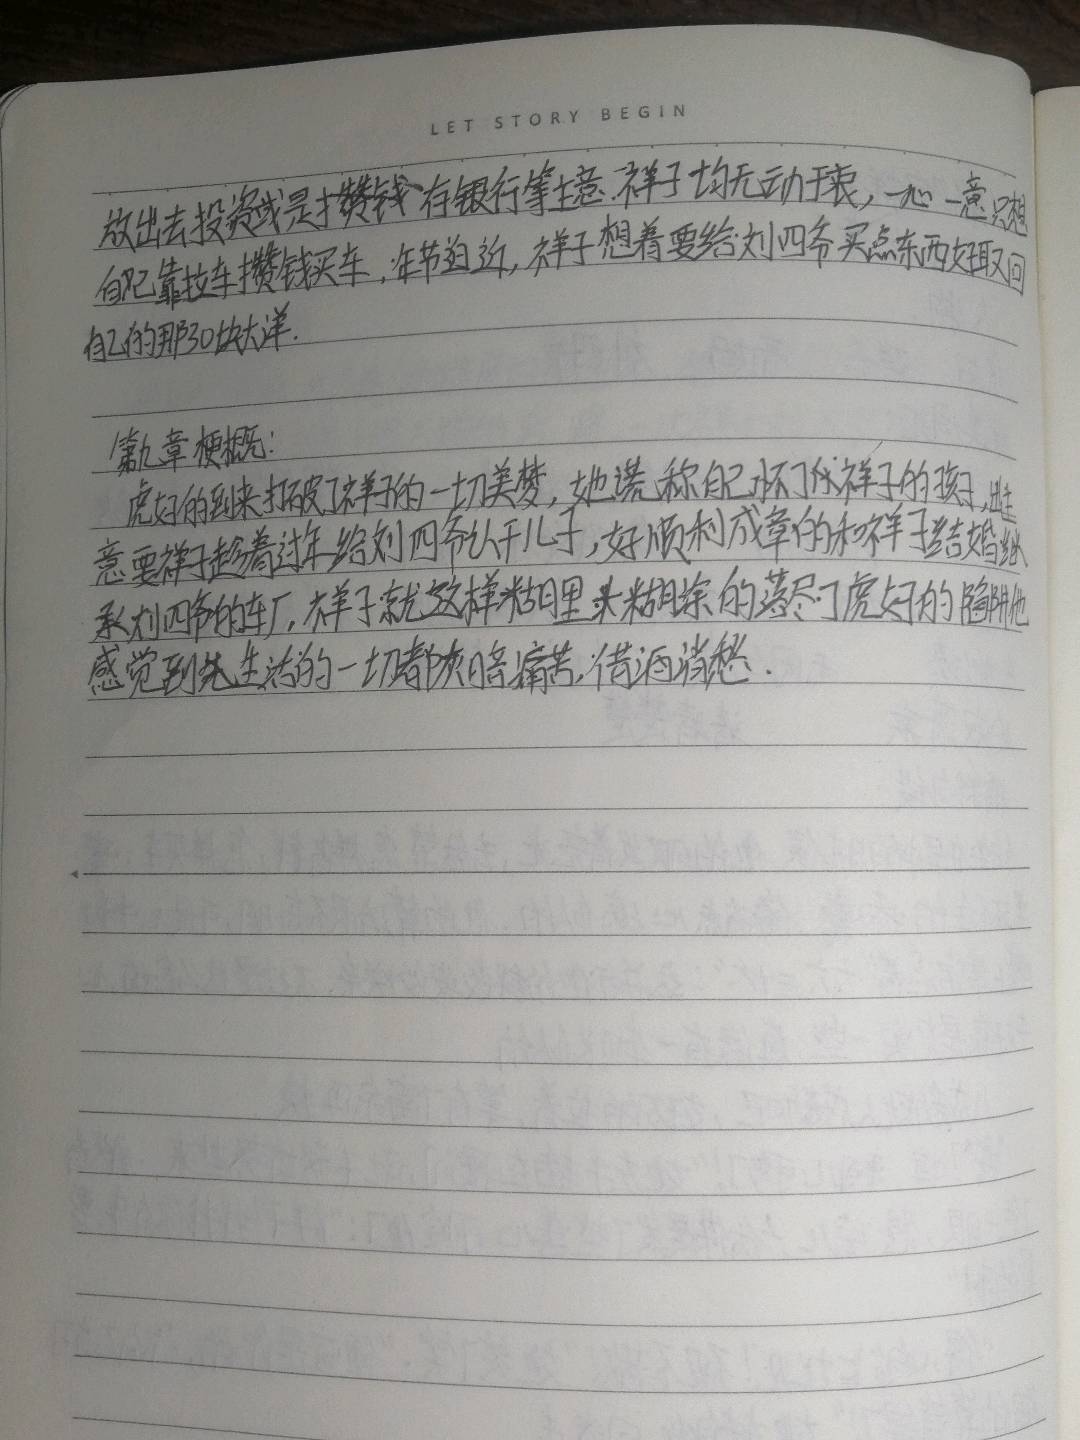 LET STORY BEGIN
放出去投资或是攒钱存银行等主意.祥子均无动于衷，一心一意只想
自己靠拉车攒钱买车，年节迫近，祥子想着要给刘四爷买点东西好取回
自己的那30块大洋.
第九章梗概:
虎妞的到来打破了祥子的一切美梦，她谎称自己怀了祥子的孩子，出主
意要祥子趁着过年给刘四爷认干儿子，好顺利成章的和祥子结婚继
承刘四爷的车厂，祥子就这样糊里头糊涂的落尽了虎妞的陷阱他
感觉到生活的一切都灰暗痛苦，借酒消愁.